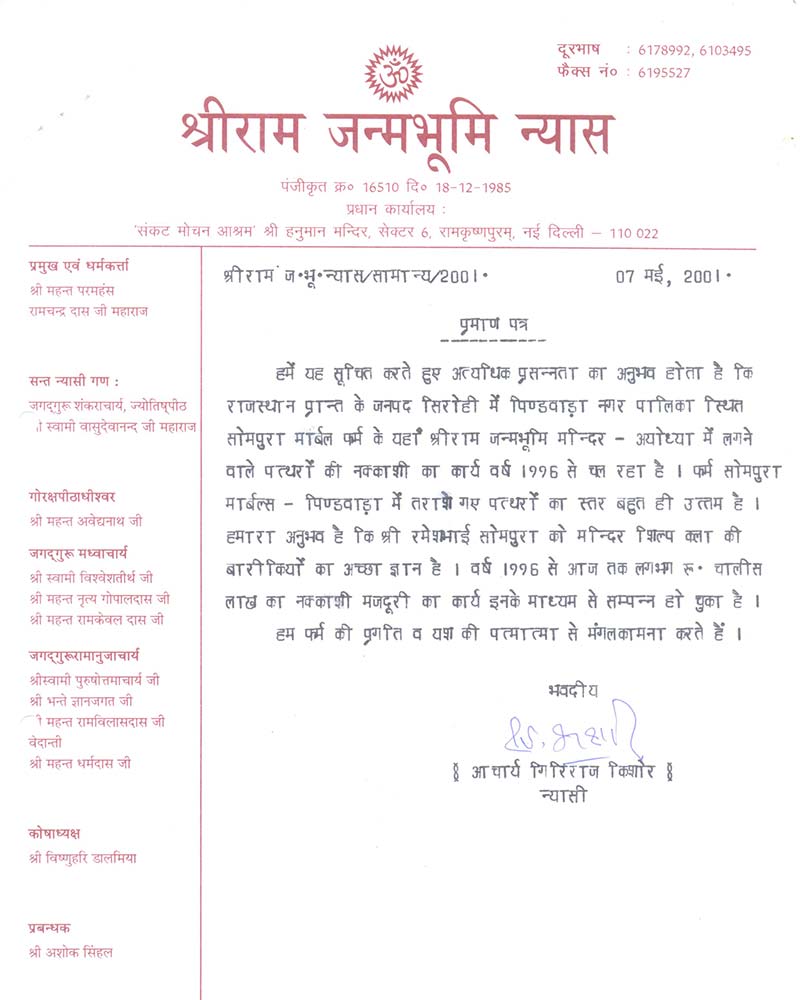 दूरभाष : 6178992, 6103495
फैक्स नं० : 6195527
ॐ
श्रीराम जन्मभूमि न्यास
पंजीकृत क्र० 16510 दि० 18-12-1985
प्रधान कार्यालय :
'संकट मोचन आश्रम' श्री हनुमान मन्दिर, सेक्टर 6, रामकृष्णपुरम्, नई दिल्ली – 110 022
प्रमुख एवं धर्मकर्त्ता
श्री महन्त परमहंस
रामचन्द्र दास जी महाराज
सन्त न्यासी गण :
जगद्गुरू शंकराचार्य, ज्योतिष्पीठ
स्वामी वासुदेवानन्द जी महाराज
गोरक्षपीठाधीश्वर
श्री महन्त अवेद्यनाथ जी
जगद्गुरू मध्वाचार्य
श्री स्वामी विश्वेशतीर्थ जी
श्री महन्त नृत्य गोपालदास जी
श्री महन्त रामकेवल दास जी
जगद्गुरूरामानुजाचार्य
श्रीस्वामी पुरुषोत्तमाचार्य जी
श्री भन्ते ज्ञानजगत जी
महन्त रामविलासदास जी
वेदान्ती
श्री महन्त धर्मदास जी
कोषाध्यक्ष
श्री विष्णुहरि डालमिया
प्रबन्धक
श्री अशोक सिंहल
श्रीराम ज.भू.न्यास/सामान्य/2001. 07 मई, 2001.
प्रमाण पत्र
हमें यह सूचित करते हुए अत्यधिक प्रसन्नता का अनुभव होता है कि
राजस्थान प्रान्त के जनपद सिरोही में पिण्डवाड़ा नगर पालिका स्थित
सोमपुरा मार्बल फर्म के यहाँ श्रीराम जन्मभूमि मन्दिर - अयोध्या में लगने
वाले पत्थरों की नक्काशी का कार्य वर्ष 1996 से चल रहा है । फर्म सोमपुरा
मार्बल्स - पिण्डवाड़ा में तराशे गए पत्थरों का स्तर बहुत ही उत्तम है ।
हमारा अनुभव है कि श्री रमेशभाई सोमपुरा को मन्दिर शिल्प कला की
बारीकियों का अच्छा ज्ञान है । वर्ष 1996 से आज तक लगभग रू. चालीस
लाख का नक्काशी मजदूरी का कार्य इनके माध्यम से सम्पन्न हो चुका है ।
हम फर्म की प्रगति व यश की पत्मात्मा से मंगलकामना करते हैं ।
भवदीय
§ आचार्य गिरिराज किशोर §
न्यासी